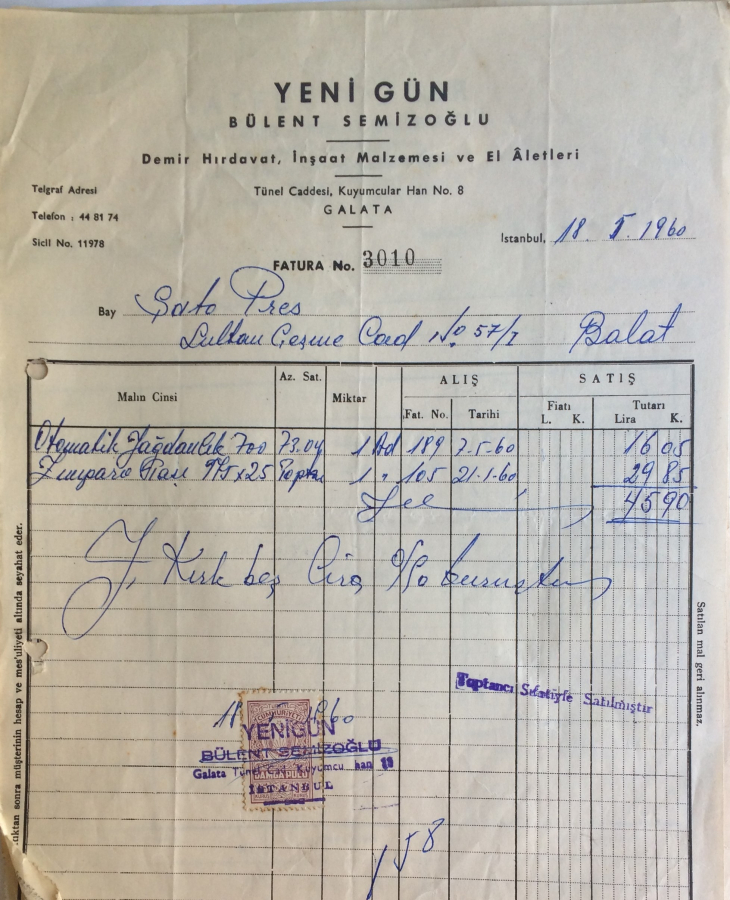 YENİ GÜN
BÜLENT SEMİZOĞLU
Demir Hırdavat, İnşaat Malzemesi ve El Âletleri
Telgraf Adresi
Tünel Caddesi, Kuyumcular Han No. 8
Telefon : 44 81 74
GALATA
Sicil No. 11978
Istanbul, 18. 5. 1960
FATURA No. 3010
Bay Şato Pres
Sultan Çeşme Cad No 57/1 Balat
Malın Cinsi
Az. Sat.
Miktar
ALIŞ
SATIŞ
Fat. No.
Tarihi
Fiatı
L. K.
Tutarı
Lira K.
Otomatik Yağdanlık 700 73.04 1 Ad 189 7-5-60 16 05
Zımpara Taşı 175x25 Toptan 1 " 105 21-1-60 29 85
45 90
Y. Kırk beş lira 90 kuruştur
Toptancı Sıfatiyle Satılmıştır
1960
YENİGÜN
BÜLENT SEMİZOĞLU
Galata Tünel Kuyumcu han 13
İSTANBUL
58
ıktan sonra müşterinin hesap ve mes'uliyeti altında seyahat eder.
Satılan mal geri alınmaz.